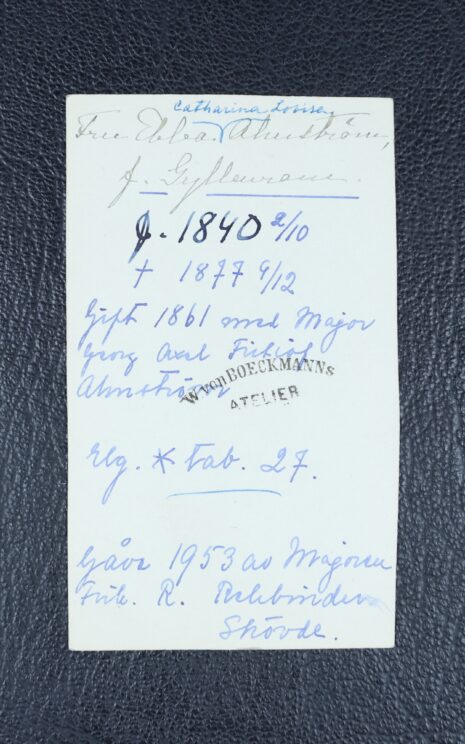 Catharina Lovisa
Fru Ebba Almström,
f. Gyllenram.
f. 1840 2/10
† 1877 9/12
Gift 1861 med Major
Georg Axel Fritiof
Almström
W von BOECKMANNs
ATELIER
Elg. * tab. 27.
Gåva 1953 av Majoren
Frih. R. Rehbinder
Skövde.